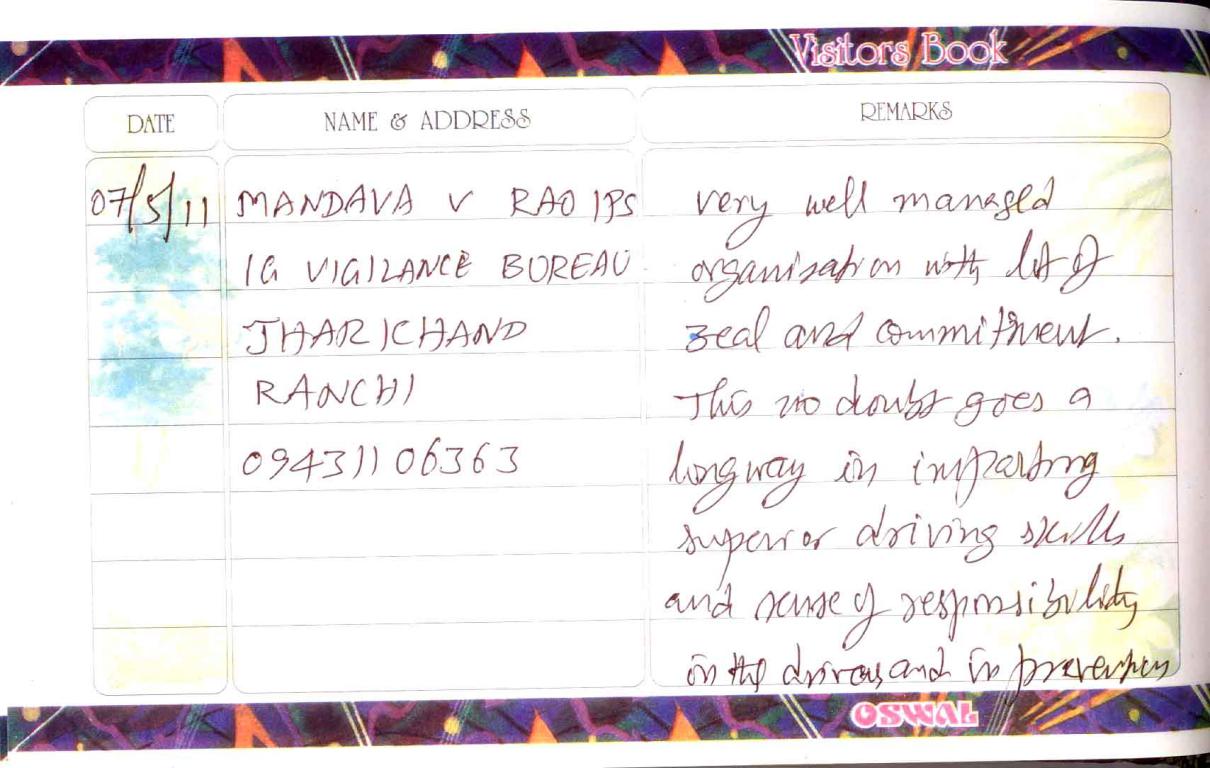 Visitors Book
DATE
NAME & ADDRESS
REMARKS
07/5/11
MANDAVA V RAO IPS
IG VIGILANCE BUREAU
JHARKHAND
RANCHI
09431106363
very well managed
organisation with lot of
zeal and commitment.
This no doubt goes a
long way in imparting
superior driving skills
and sense of responsibility
in the drivers and in prevention
OSWAL